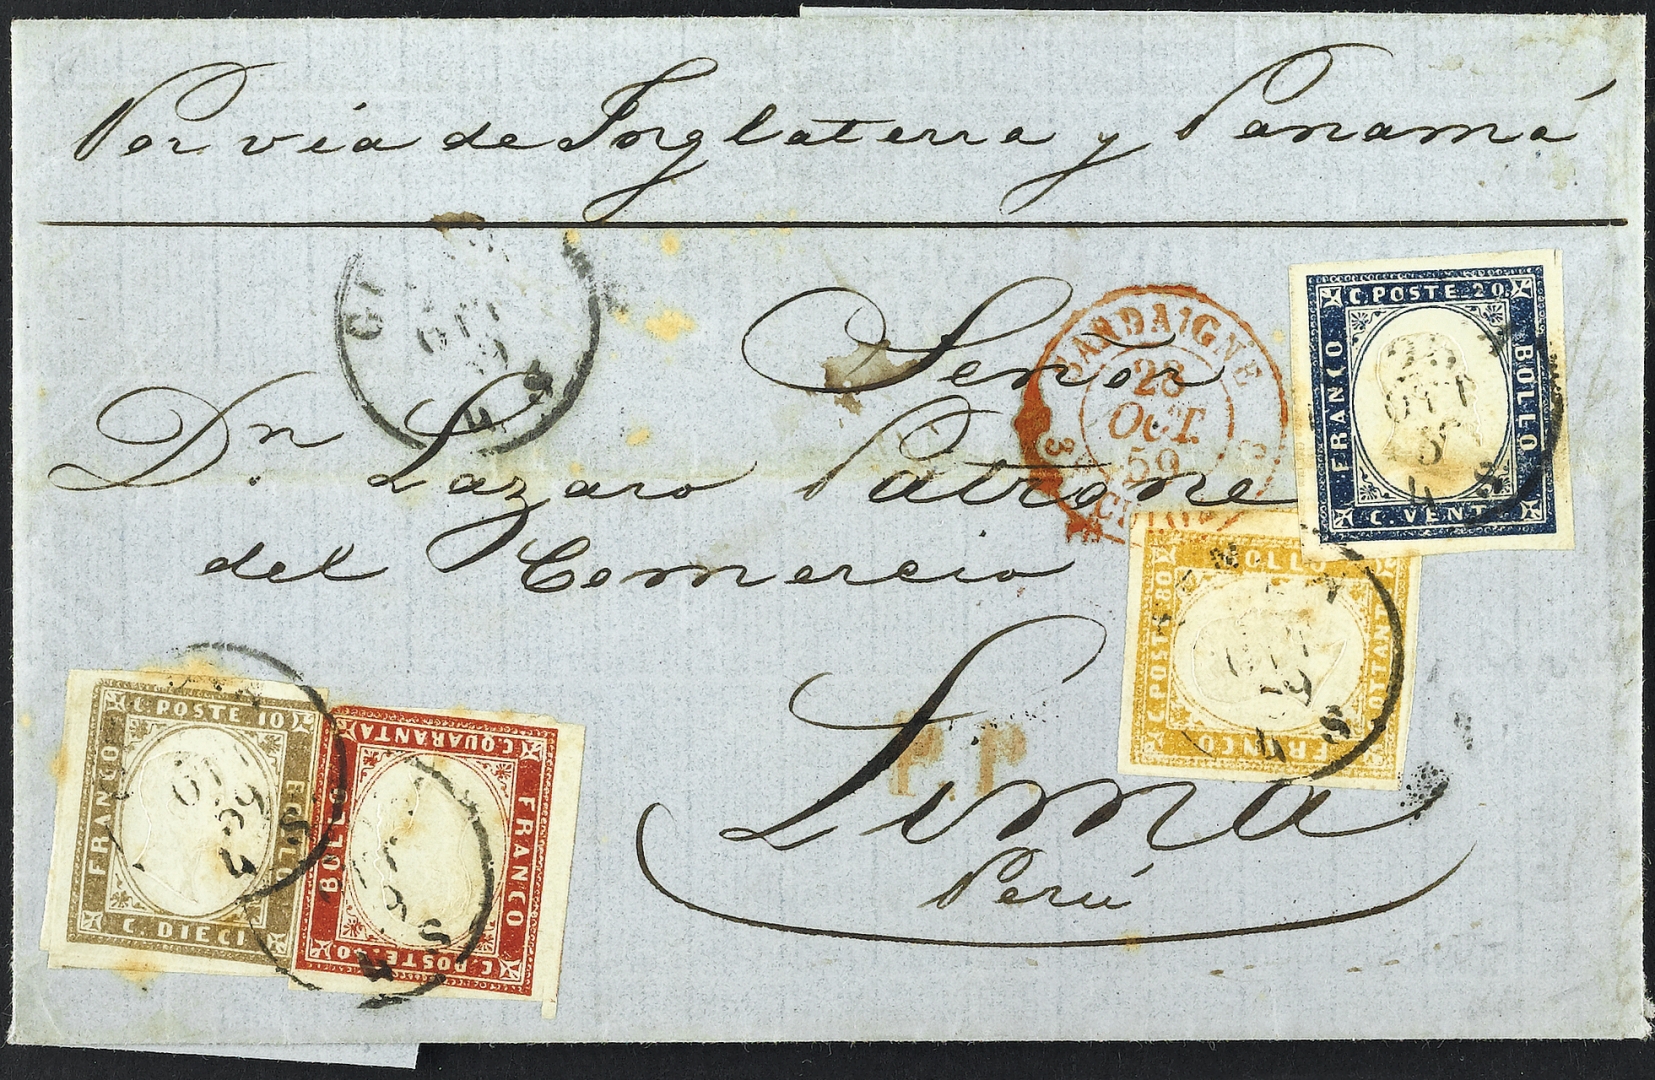 Por via de Inglaterra y Panamá
Señor
Dn. Lazaro Patrone
del Comercio
Lima
Perú
P.P.
SARDAIGNE
28
OCT.
59
3
3
C. POSTE 20
FRANCO
BOLLO
C. VENTI
25
OTT
4 S
C. POSTE 80
BOLLO
OTTANTA
FRANCO
OTT
59
4 S
C. POSTE 10
FRANCO
BOLLO
C. DIECI
OTT
59
4 S
C. QUARANTA
BOLLO
FRANCO
C. POSTE. 40
4 S
OTT
4 S